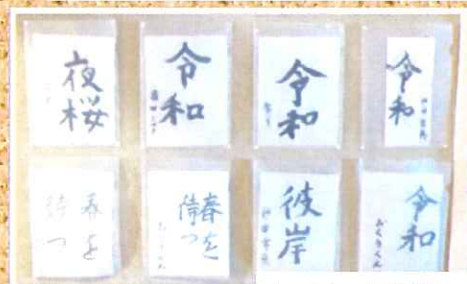 夜桜
令和
令和
令和
春を
待つ
春を
待つ
彼岸
令和